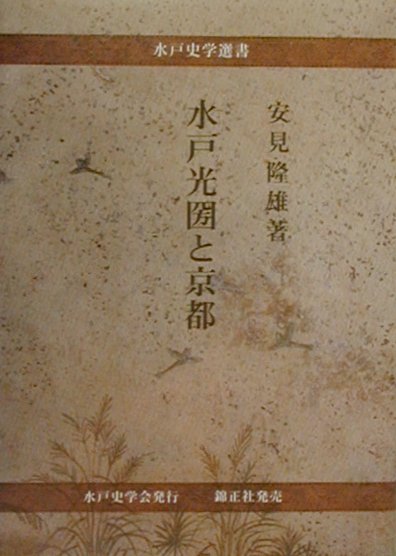 水戸史学選書
安見隆雄著
水戸光圀と京都
水戸史学会発行 錦正社発売